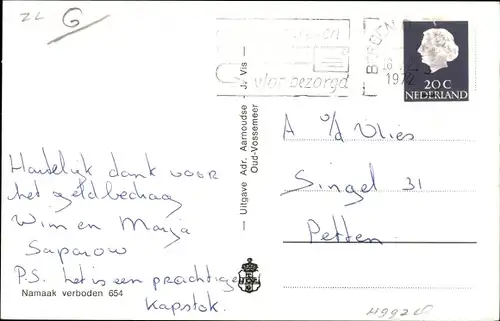 ZL G
vlot bezorgd
1972
20 C
NEDERLAND
Hartelijk dank voor
het geldbedrag
Wim en Marja
Saparow
P.S. het is een prachtige
Kapstok.
Namaak verboden 654
— Uitgave Adr. Aarnoudse - J. Vis —
Oud-Vossemeer
A v/d Vlies
Singel 31
Petten